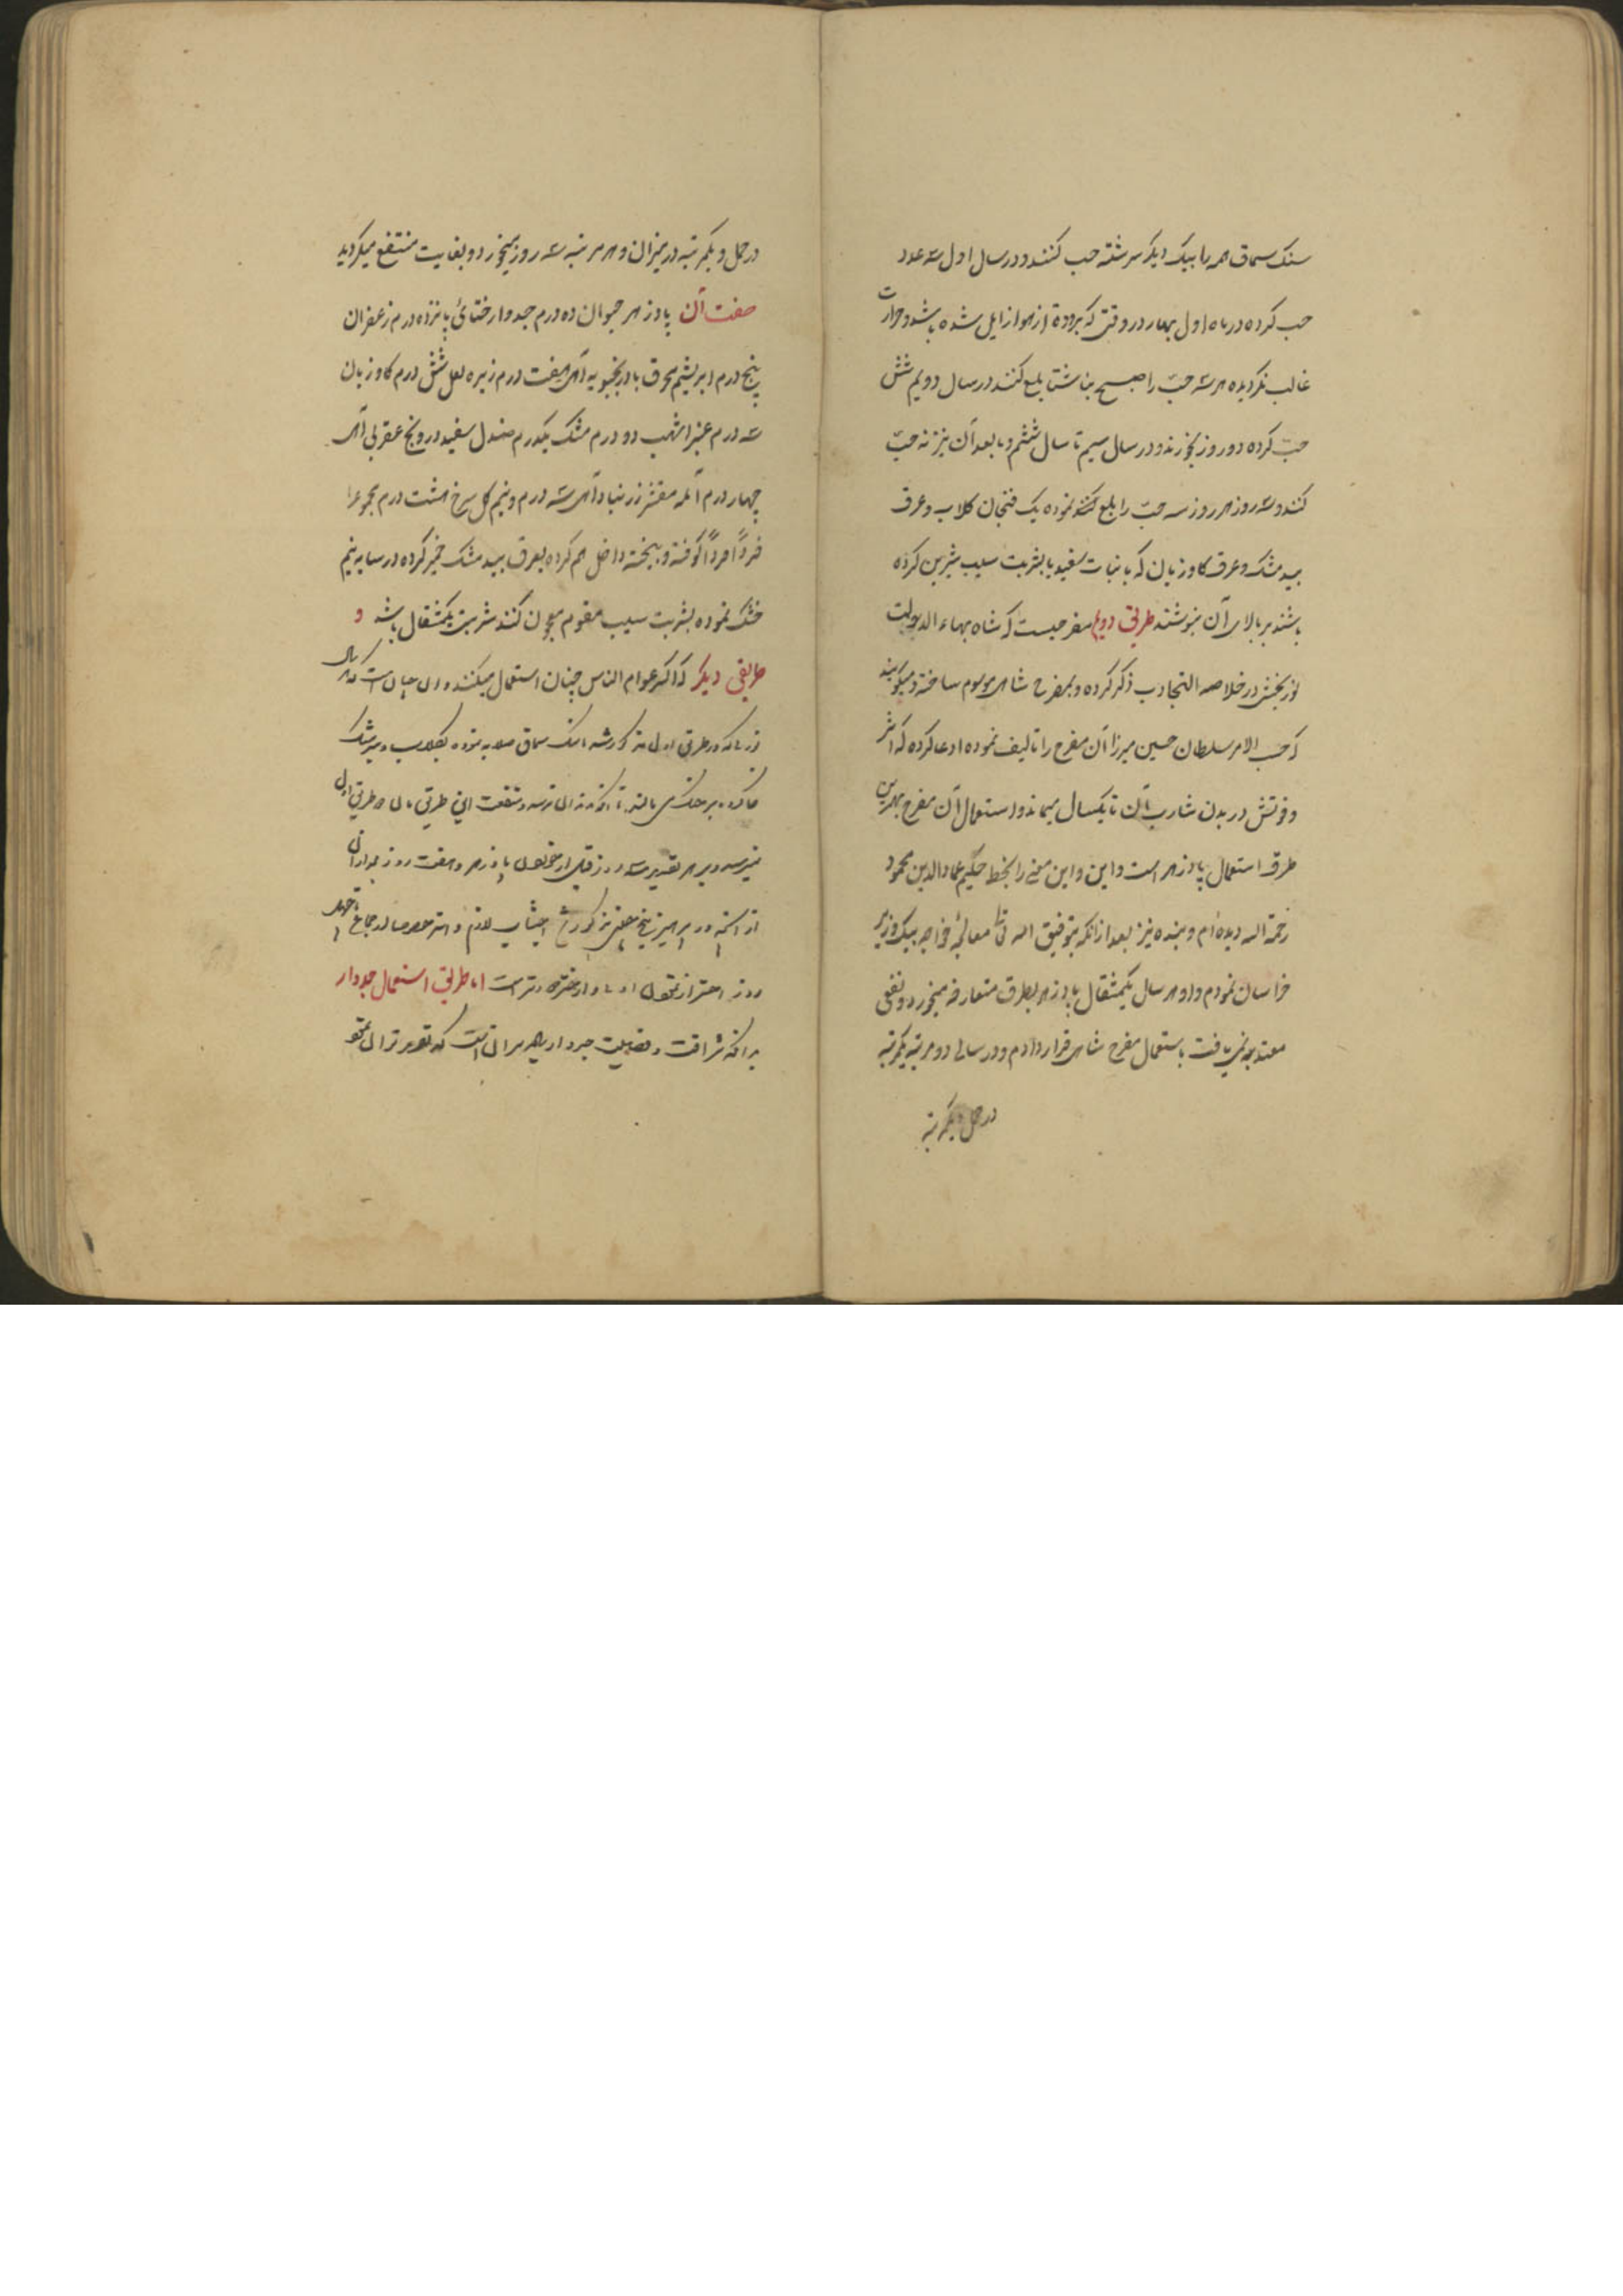 سنک سماق همه را بیک دیکر سرشته حب کنند و در سال اول سه عدد
حب کرده در ماه اول بهار در وقتی که برودة از هوا زایل شده باشد و حرارت
غالب نکردیده هر سه حبّ را صبح ناشتا بلع کنند در سال دویم شش
حبّ کرده دو روز بخورند و در سال سیم تا سال ششم و ما بعد آن نیز نه حبّ
کنند و سه روز هر روز سه حبّ را بلع نموده یک فنجان کلاب و عرق
بیدمشک و عرق کاوزبان که با نبات سفید یا بشربت سیب شیرین کرده
باشند بر بالای آن بنوشند طریق دویم مفرحیست که شاه بهاء الدوله
نوربخش در خلاصه التجارب ذکر کرده و بمفرح شاهی موسوم ساخته و میکویند
که حسب الامر سلطان حسین میرزا آن مفرح را تالیف نموده ادعا کرده که اثر
و قوتش در بدن شارب آن تا یکسال میماند و استعمال آن مفرح بهترین
طرق استعمال پادزهر است و این و این معنی را بخط حکیم عمادالدین محمود
رحمة الله دیده‌ام و بنده نیز بعد از آنکه بتوفیق الله تعالی معالجهٔ خواجه بیک وزیر
خراسان نمودم و او هر سال یکمثقال پادزهر بطرق متعارفه میخورد و نفعی
معتد به نمی یافت باستعمال مفرح شاهی قرار دادم و در سالی دو مرتبه یکمرتبه
در حمل و یکمرتبه
در حمل و یکمرتبه در میزان و هر مرتبه سه روز میخورد و بغایت منتفع میکردید
صفت آن پادزهر حیوان ده درم جدوار ختائی پانزده درم زعفران
پنج درم ابریشم محرق بادرنجبویه آمی هفت درم زیره لعل شش درم کاوزبان
سه درم عنبر اشهب دو درم مشک یکدرم صندل سفید درونج عقربی آمی
چهار درم آمله مقشر زرنباد آمی سه درم و نیم کل سرخ هشت درم مجموع را
فرداً فرداً کوفته و بیخته داخل هم کرده بعرق بیدمشک خمیر کرده در سایه نیم
خشک نموده بشربت سیب مقوم معجون کنند شربتی یکمثقال باشد و
طریقی دیکر که اکثر عوام الناس چنان استعمال میکنند و آن چنان است که
که در طریق اول مذکور شد سنک سماق صلایه نموده بکلاب و بیدمشک
منفعت این طریق طریق اول
نمیرسد و بر هر تقدیر سه روز قبل از پادزهر و هفت روز بعد از آن
از لازم و
روز احتراز اما طریق استعمال جدوار
بدانکه شرافت و فضیلت جدوار